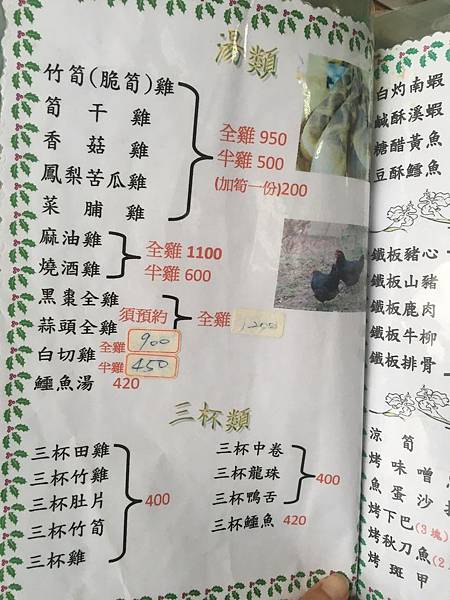 湯類
竹筍(脆筍)雞
筍干雞
香菇雞
鳳梨苦瓜雞
菜脯雞
全雞 950
半雞 500
(加筍一份)200
麻油雞
燒酒雞
全雞 1100
半雞 600
黑棗全雞
蒜頭全雞
須預約
全雞 1200
白切雞
全雞 900
半雞 450
鱷魚湯 420
三杯類
三杯田雞
三杯竹雞
三杯肚片
三杯竹筍
三杯雞
400
三杯中卷
三杯龍珠
三杯鴨舌
400
三杯鱷魚 420
白灼南蝦
鹹酥溪蝦
糖醋黃魚
豆酥鱈魚
鐵板豬心
鐵板山豬
鐵板鹿肉
鐵板牛柳
鐵板排骨
涼筍
烤味噌
魚蛋沙
烤下巴(3塊)
烤秋刀魚(2
烤斑甲